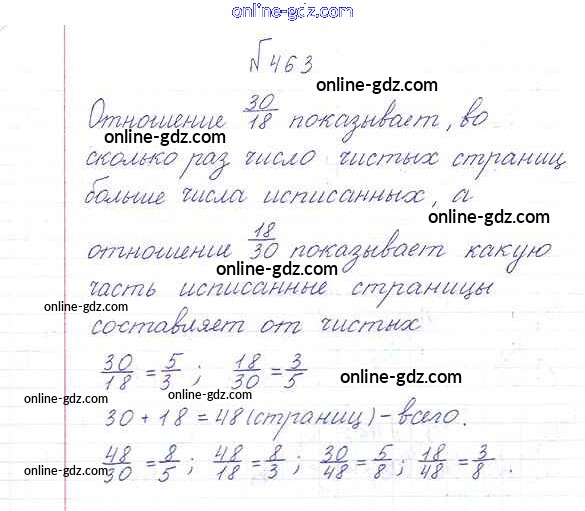 online-gdz.com
№ 463
online-gdz.com
Отношение 30/18 показывает, во
online-gdz.com
сколько раз число чистых страниц
больше числа исписанных, а
online-gdz.com
отношение 18/30 показывает какую
online-gdz.com
часть исписанные страницы
online-gdz.com
составляет от чистых
30/18 = 5/3; 18/30 = 3/5
online-gdz.com
online-gdz.com
30 + 18 = 48 (страниц) – всего.
48/30 = 8/5; 48/18 = 8/3; 30/48 = 5/8; 18/48 = 3/8.
online-gdz.com
online-gdz.com